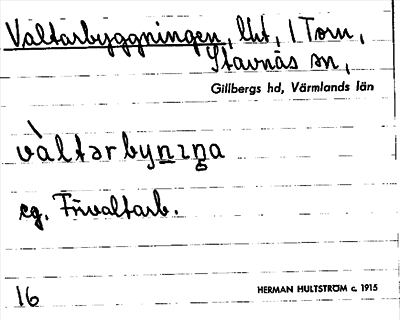 Valtarbyggningen, lht, 1 Torn,
Stavnäs sn,
Gillbergs hd, Värmlands län
vàltərbynɪŋa
eg. Tüvaltarb.
16
HERMAN HULTSTRÖM c. 1915